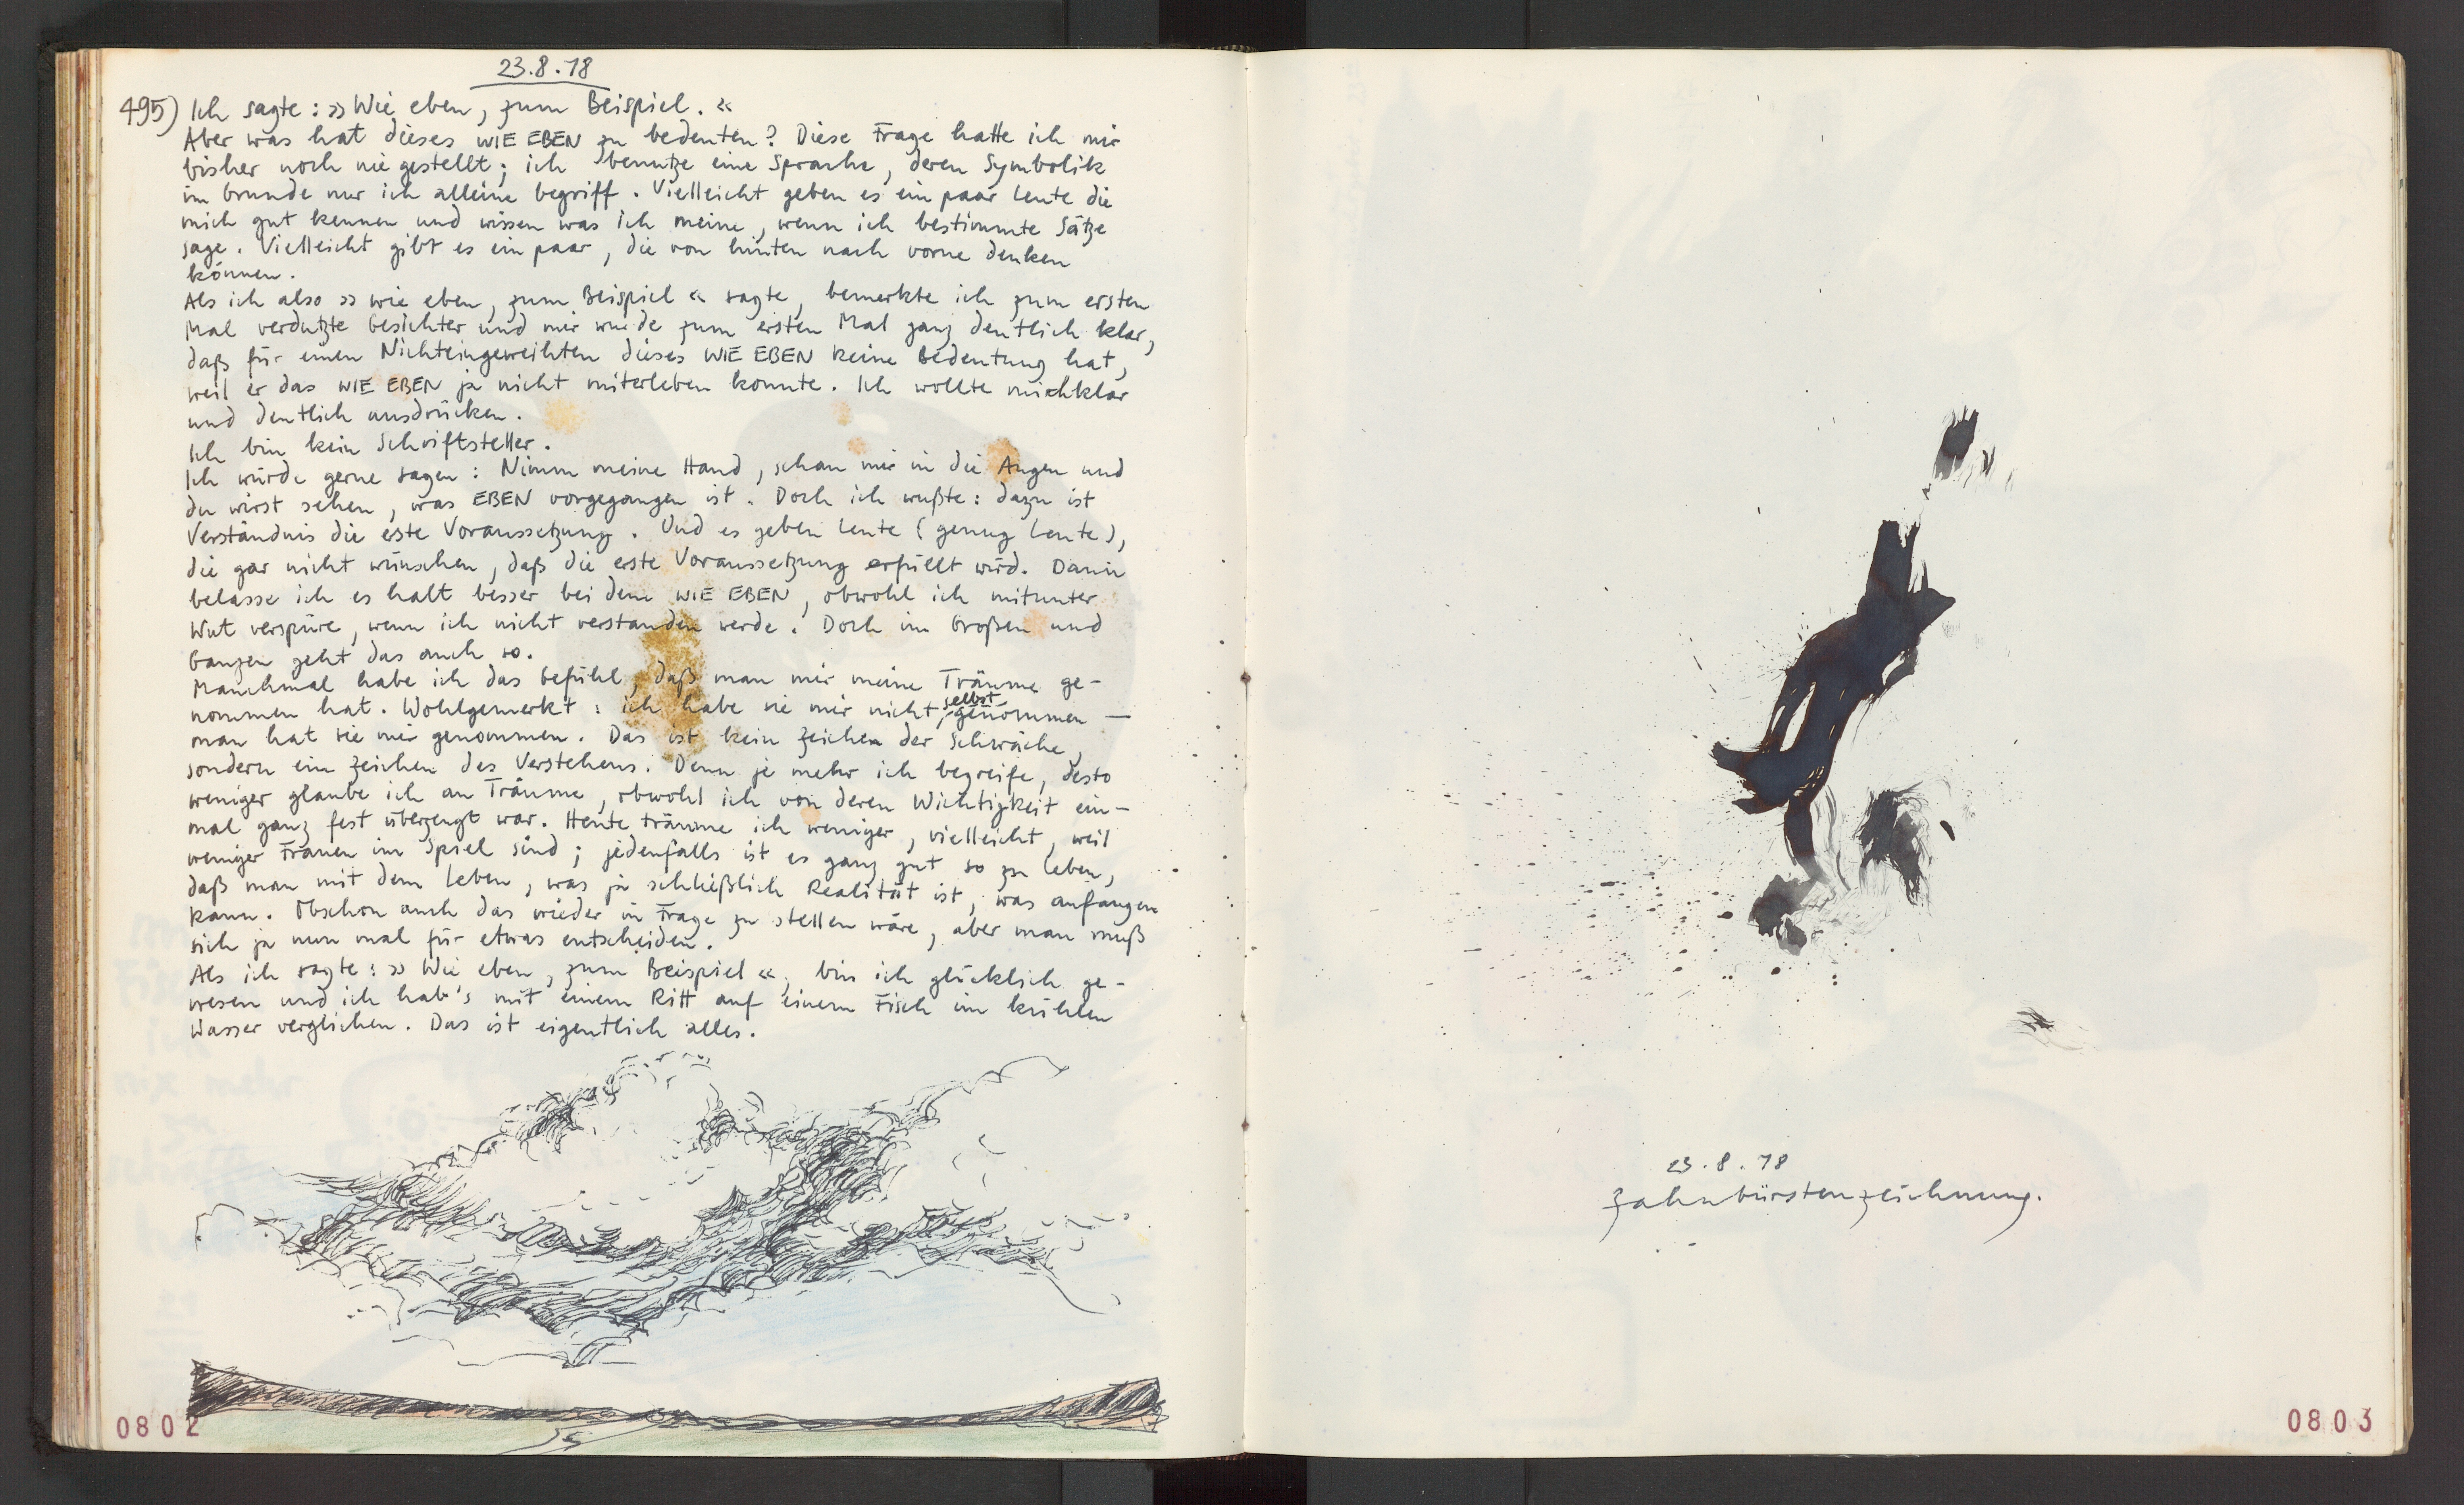 23.8.18
495) Ich sagte: »Wie eben, zum Beispiel.«
Aber was hat dieses WIE EBEN zu bedeuten? Diese Frage hatte ich mir
bisher noch nie gestellt; ich benutze eine Sprache, deren Symbolik
im Grunde nur ich alleine begriff. Vielleicht geben es ein paar Leute die
mich gut kennen und wissen was ich meine, wenn ich bestimmte Sätze
sage. Vielleicht gibt es ein paar, die von hinten nach vorne denken
können.
Als ich also »wie eben, zum Beispiel« sagte, bemerkte ich zum ersten
Mal verdutzte Gesichter und mir wurde zum ersten Mal ganz deutlich klar,
daß für einen Nichteingeweihten dieses WIE EBEN keine Bedeutung hat,
weil er das WIE EBEN ja nicht miterleben konnte. Ich wollte mich klar
und deutlich ausdrücken.
Ich bin kein Schriftsteller.
Ich würde gerne sagen: Nimm meine Hand, schau mir in die Augen und
du wirst sehen, was EBEN vorgegangen ist. Doch ich wußte: dazu ist
Verständnis die este Voraussetzung. Und es geben Leute (genug Leute),
die gar nicht wünschen, daß die erste Voraussetzung erfüllt wird. Dann
belasse ich es halt besser bei dem WIE EBEN, obwohl ich mitunter
Wut verspüre, wenn ich nicht verstanden werde. Doch im Großen und
Ganzen geht das auch so.
Manchmal habe ich das Gefühl, daß man mir meine Träume ge-
nommen hat. Wohlgemerkt: ich habe sie mir nicht selbst genommen —
man hat sie mir genommen. Das ist kein Zeichen der Schwäche,
sondern ein Zeichen des Verstehens. Denn je mehr ich begreife, desto
weniger glaube ich an Träume, obwohl ich von deren Wichtigkeit ein-
mal ganz fest überzeugt war. Heute träume ich weniger, vielleicht, weil
weniger Frauen im Spiel sind; jedenfalls ist es ganz gut so zu leben,
daß man mit dem Leben, was ja schließlich Realität ist, was anfangen
kann. Obschon auch das wieder in Frage zu stellen wäre, aber man muß
sich ja nun mal für etwas entscheiden.
Als ich sagte: »Wie eben, zum Beispiel«, bin ich glücklich ge-
wesen und ich hab's mit einem Ritt auf einem Fisch im kühlen
Wasser verglichen. Das ist eigentlich alles.
0802
23.8.18
Zahnbürstenzeichnung.
0803